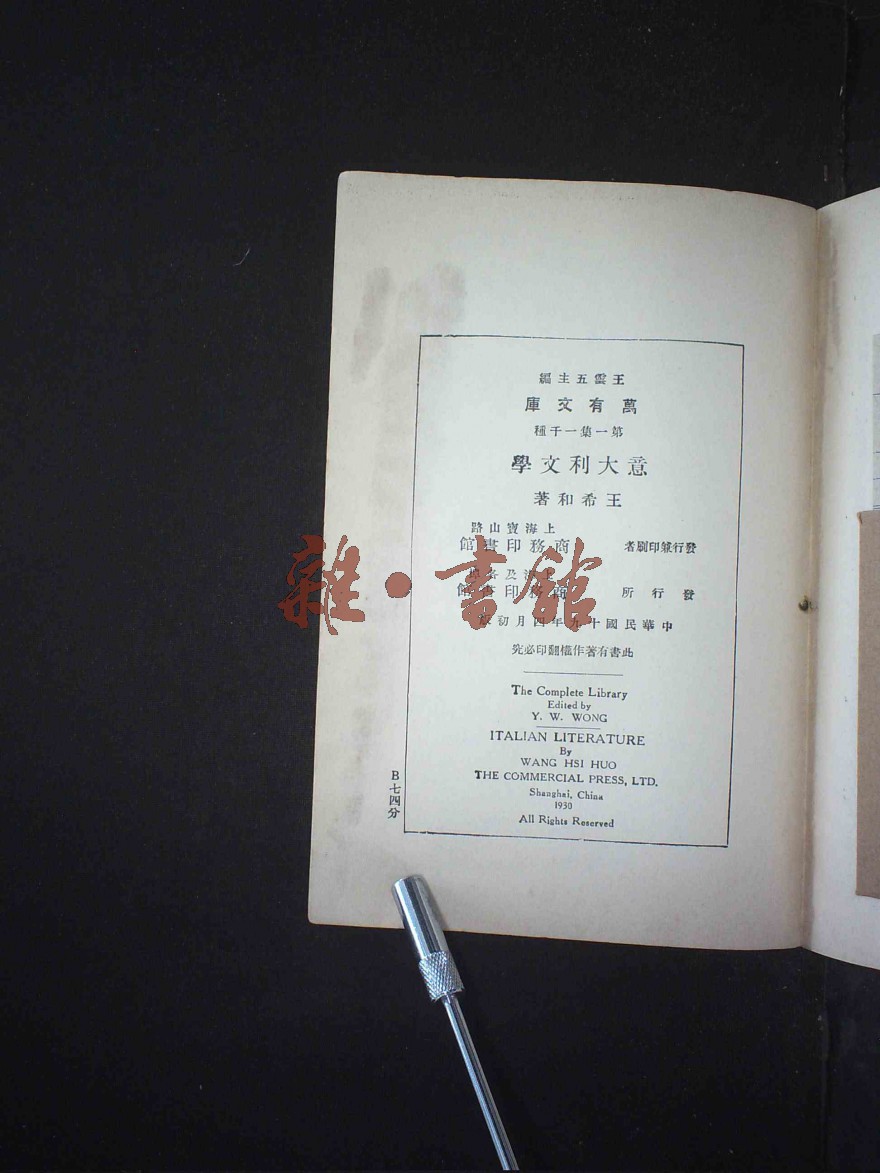 王雲五主編
萬有文庫
第一集一千種
意大利文學
王希和著
上海寶山路
發行兼印刷者 商務印書館
上海及各埠
發行所 商務印書館
中華民國十九年四月初版
此書有著作權翻印必究
The Complete Library
Edited by
Y. W. WONG
ITALIAN LITERATURE
By
WANG HSI HUO
THE COMMERCIAL PRESS, LTD.
Shanghai, China
1930
All Rights Reserved
B七四分
雜·書館